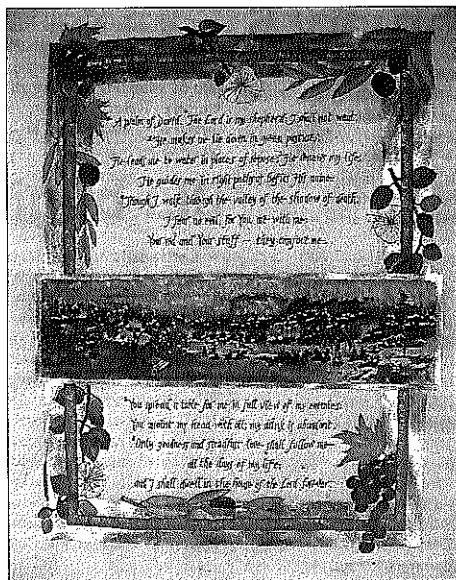 A psalm of David. The Lord is my shepherd; I shall not want.
He makes me lie down in green pastures;
He leads me to water in places of repose; He renews my life;
He guides me in right paths as befits His name.
Though I walk through the valley of the shadow of death,
I fear no evil, for You are with me;
Your rod and Your staff — they comfort me.
You spread a table for me in full view of my enemies;
You anoint my head with oil; my drink is abundant.
Only goodness and steadfast love shall follow me
all the days of my life,
and I shall dwell in the house of the Lord forever.